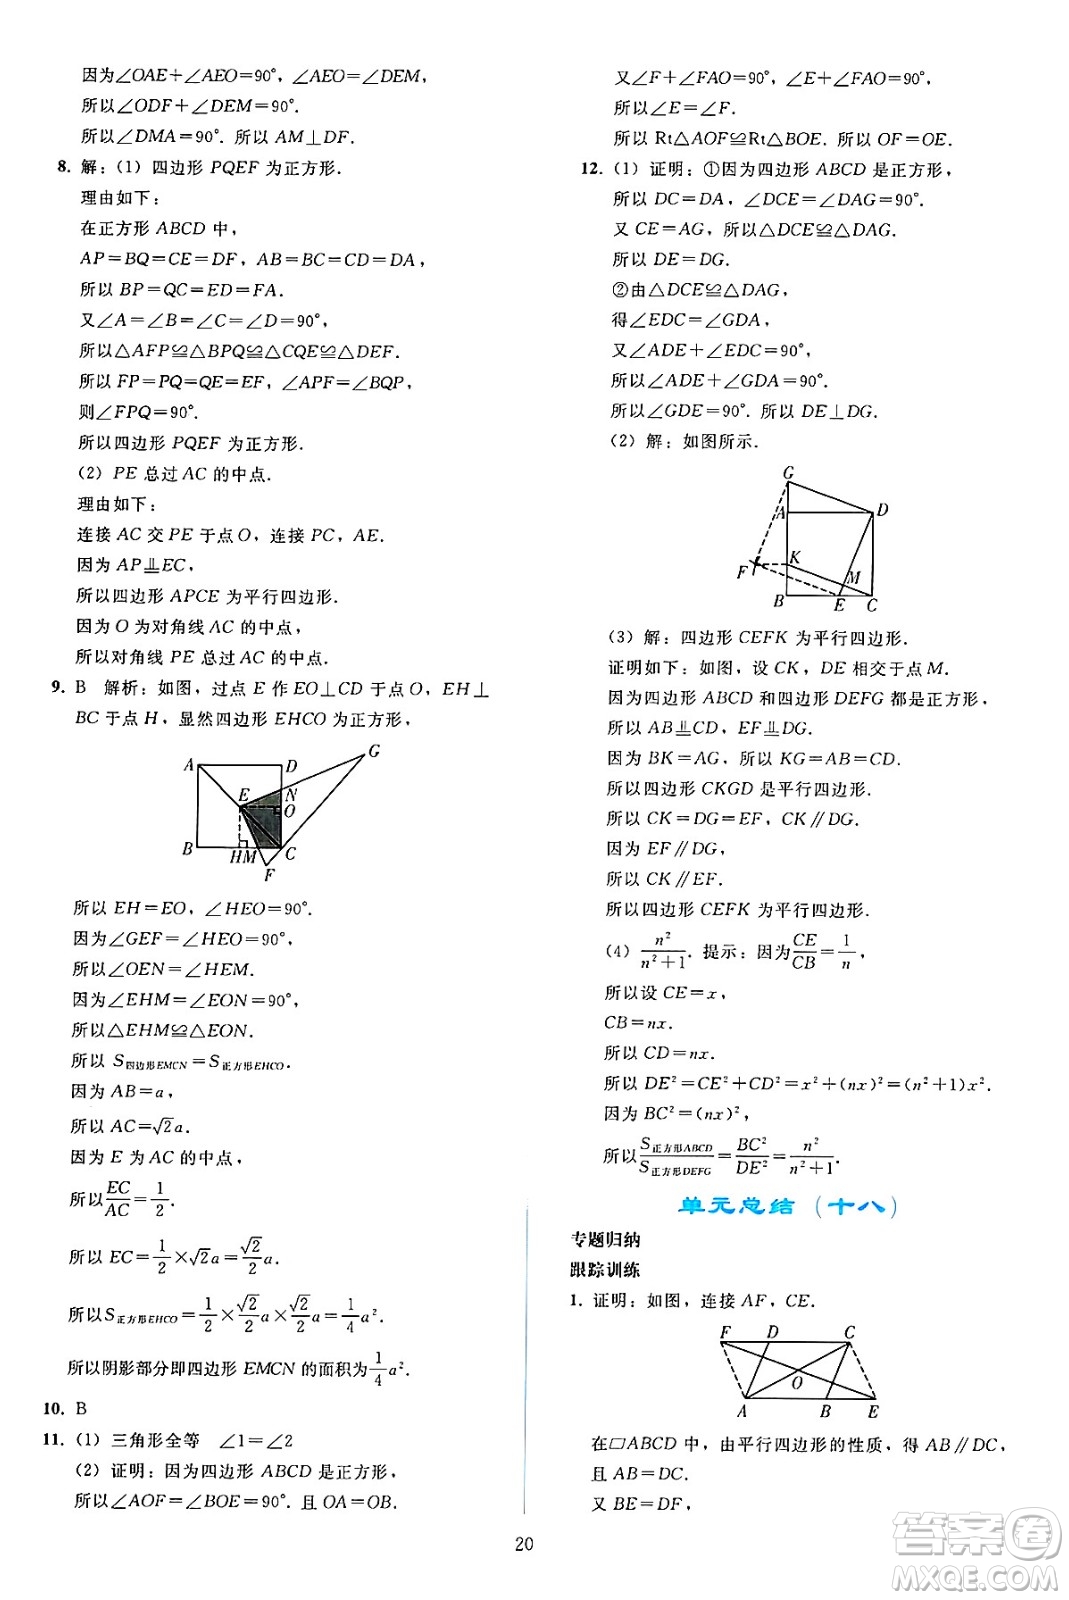 因为∠OAE+∠AEO=90°,∠AEO=∠DEM,
所以∠ODF+∠DEM=90°.
所以∠DMA=90°. 所以 AM⊥DF.
8. 解:(1) 四边形 PQEF 为正方形.
理由如下:
在正方形 ABCD 中,
AP=BQ=CE=DF, AB=BC=CD=DA,
所以 BP=QC=ED=FA.
又∠A=∠B=∠C=∠D=90°,
所以△AFP≌△BPQ≌△CQE≌△DEF.
所以 FP=PQ=QE=EF, ∠APF=∠BQP,
则∠FPQ=90°.
所以四边形 PQEF 为正方形.
(2) PE 总过 AC 的中点.
理由如下:
连接 AC 交 PE 于点 O, 连接 PC, AE.
因为 AP⫫EC,
所以四边形 APCE 为平行四边形.
因为 O 为对角线 AC 的中点,
所以对角线 PE 总过 AC 的中点.
9. B 解析:如图,过点 E 作 EO⊥CD 于点 O, EH⊥
BC 于点 H, 显然四边形 EHCO 为正方形,
A D G
E N
O
B H M C
F
所以 EH=EO, ∠HEO=90°.
因为∠GEF=∠HEO=90°,
所以∠OEN=∠HEM.
因为∠EHM=∠EON=90°,
所以△EHM≌△EON.
所以 S四边形EMCN=S正方形EHCO.
因为 AB=a,
所以 AC=√2a.
因为 E 为 AC 的中点,
所以EC/AC=1/2.
所以 EC=1/2×√2a=√2/2 a.
所以S正方形EHCO=1/2×√2/2 a×√2/2 a=1/4 a².
所以阴影部分即四边形 EMCN 的面积为1/4 a².
10. B
11. (1) 三角形全等 ∠1=∠2
(2) 证明:因为四边形 ABCD 是正方形,
所以∠AOF=∠BOE=90°. 且 OA=OB.
又∠F+∠FAO=90°, ∠E+∠FAO=90°,
所以∠E=∠F.
所以 Rt△AOF≌Rt△BOE. 所以 OF=OE.
12. (1) 证明:①因为四边形 ABCD 是正方形,
所以 DC=DA, ∠DCE=∠DAG=90°.
又 CE=AG, 所以△DCE≌△DAG.
所以 DE=DG.
②由△DCE≌△DAG,
得∠EDC=∠GDA,
又∠ADE+∠EDC=90°,
所以∠ADE+∠GDA=90°.
所以∠GDE=90°. 所以 DE⊥DG.
(2) 解:如图所示.
G
A D
K
F M
B E C
(3) 解:四边形 CEFK 为平行四边形.
证明如下:如图,设 CK, DE 相交于点 M.
因为四边形 ABCD 和四边形 DEFG 都是正方形,
所以 AB⫫CD, EF⫫DG.
因为 BK=AG, 所以 KG=AB=CD.
所以四边形 CKGD 是平行四边形.
所以 CK=DG=EF, CK∥DG.
因为 EF∥DG,
所以 CK∥EF.
所以四边形 CEFK 为平行四边形.
(4) n²/(n²+1). 提示:因为CE/CB=1/n,
所以设 CE=x,
CB=nx.
所以 CD=nx.
所以 DE²=CE²+CD²=x²+(nx)²=(n²+1)x².
因为 BC²=(nx)²,
所以S正方形ABCD/S正方形DEFG=BC²/DE²=n²/(n²+1).
单元总结(十八)
专题归纳
跟踪训练
1. 证明:如图,连接 AF, CE.
F D C
O
A B E
在▱ABCD 中, 由平行四边形的性质, 得 AB∥DC,
且 AB=DC.
又 BE=DF,
20
答案卷
MXQE.COM